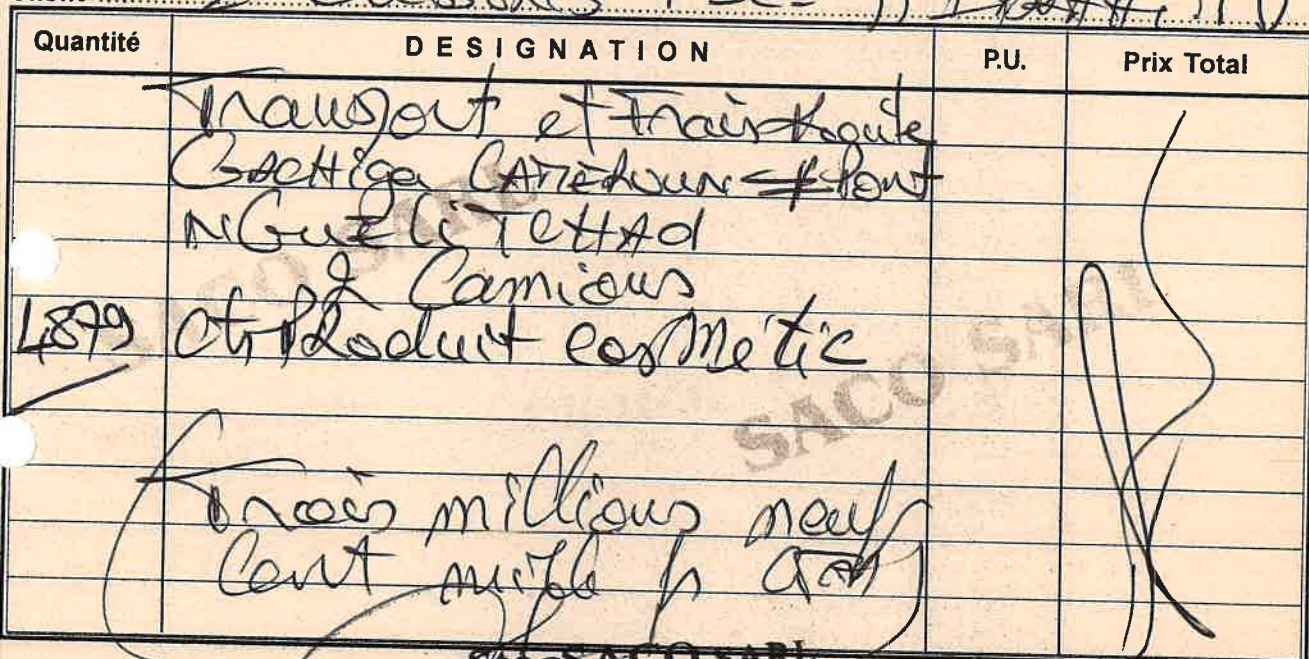 Quantité DESIGNATION P.U. Prix Total
Transport et Frais Route
Gachiga CAMEROUN Pont
NGueli TCHAD
2 Camions
4879 Ct Produit cosMétic
Trois millions neuf
Cent mille
SACO SARL
SACO SARL
SACO SARL